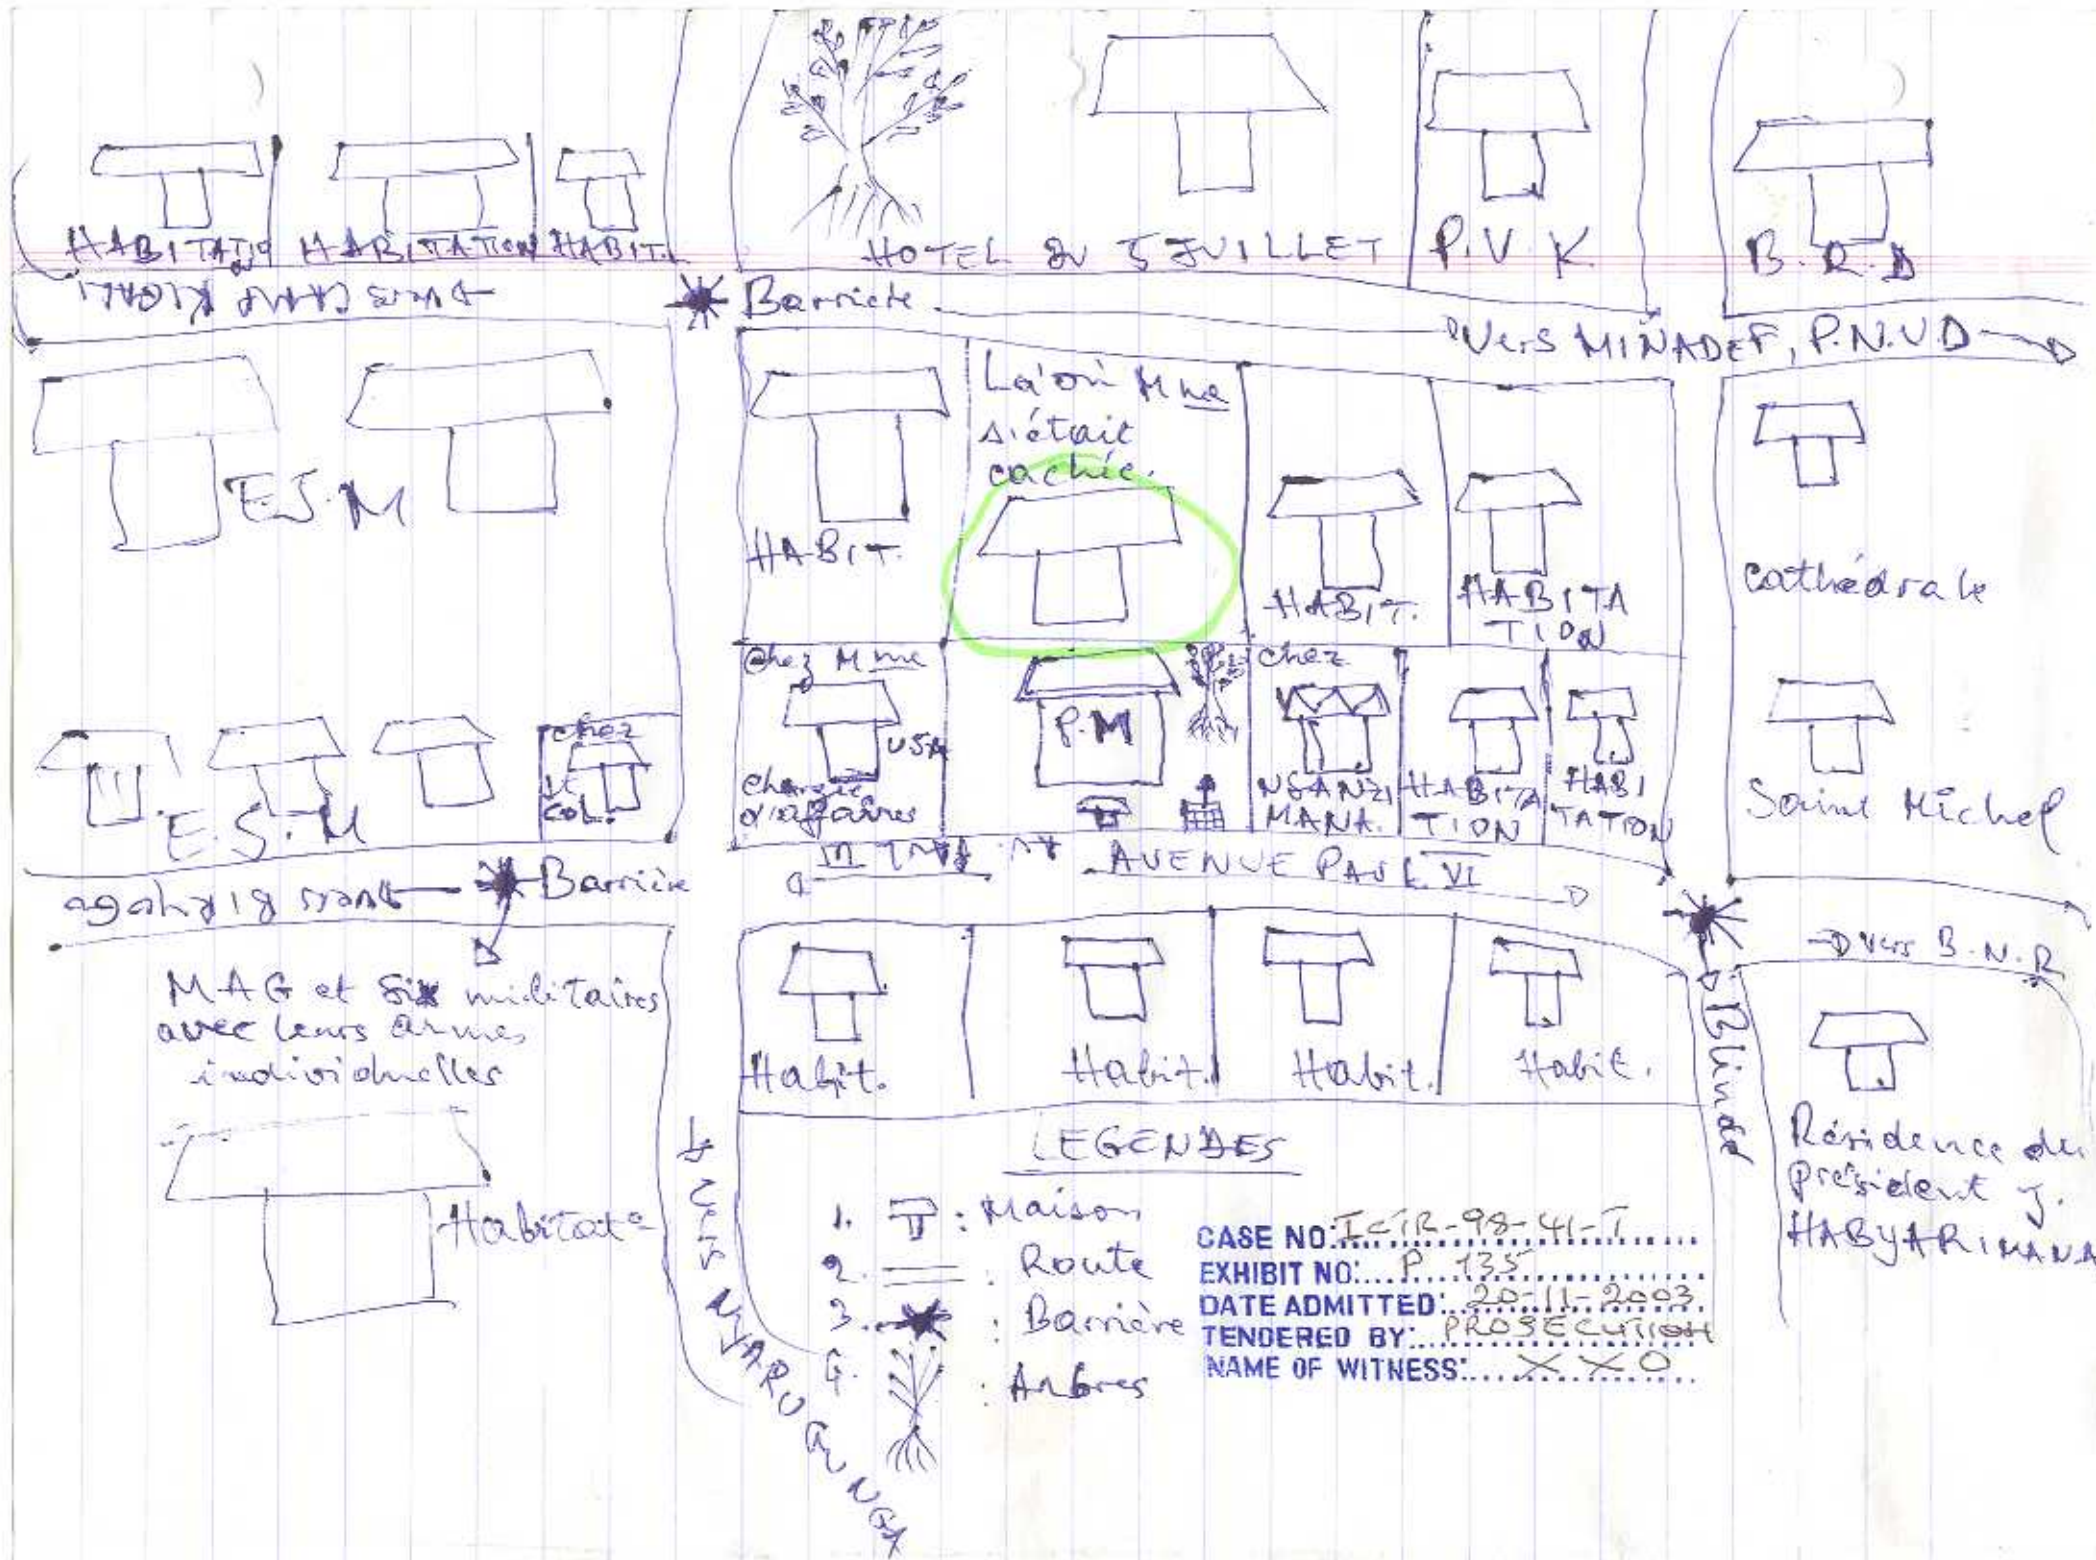 HABITATIO
HABITATION
HABIT.
HOTEL du 5 JUILLET
P.V.K.
B.R.D
Vers CAMP KIGALI
Barrière
Vers MINADEF, P.N.U.D
E.S.M
HABIT.
Là où Mme
s'était
cachée.
HABIT.
HABITA
TION
Cathédrale
Saint Michel
E.S.M
chez
le
COL.
Chez Mme
USA
Chargée
d'affaires
P.M
chez
NGANZI
MANA.
HABITA
TION
HABI
TATION
Vers BIRYOGO
Barrière
AV. PAUL VI
AVENUE PAUL VI
Vers B.N.R
Blindé
MAG et six militaires
avec leurs armes
individuelles
Habit.
Habit.
Habit.
Habit.
Habitat°
Vers NYARUGUNGA
Résidence du
Président J.
HABYARIMANA
LEGENDES
1. : Maison
2. : Route
3. : Barrière
4. : Arbres
CASE NO: ICTR-98-41-T
EXHIBIT NO: P 135
DATE ADMITTED: 20-11-2003
TENDERED BY: PROSECUTION
NAME OF WITNESS: XXO